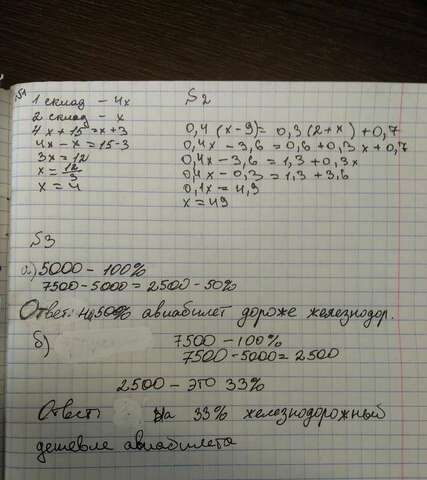 №1
1 склад - 4x
2 склад - x
4x+15=x+3
4x-x=15-3
3x=12
x=12/3
x=4
№2
0,4(x-9)=0,3(2+x)+0,7
0,4x-3,6=0,6+0,3x+0,7
0,4x-3,6=1,3+0,3x
0,4x-0,3=1,3+3,6
0,1x=4,9
x=49
№3
а) 5000-100%
7500-5000=2500-50%
Ответ: на 50% авиабилет дороже железнодор.
б)
7500-100%
7500-5000=2500
2500-это 33%
Ответ: на 33% железнодорожный
дешевле авиабилета